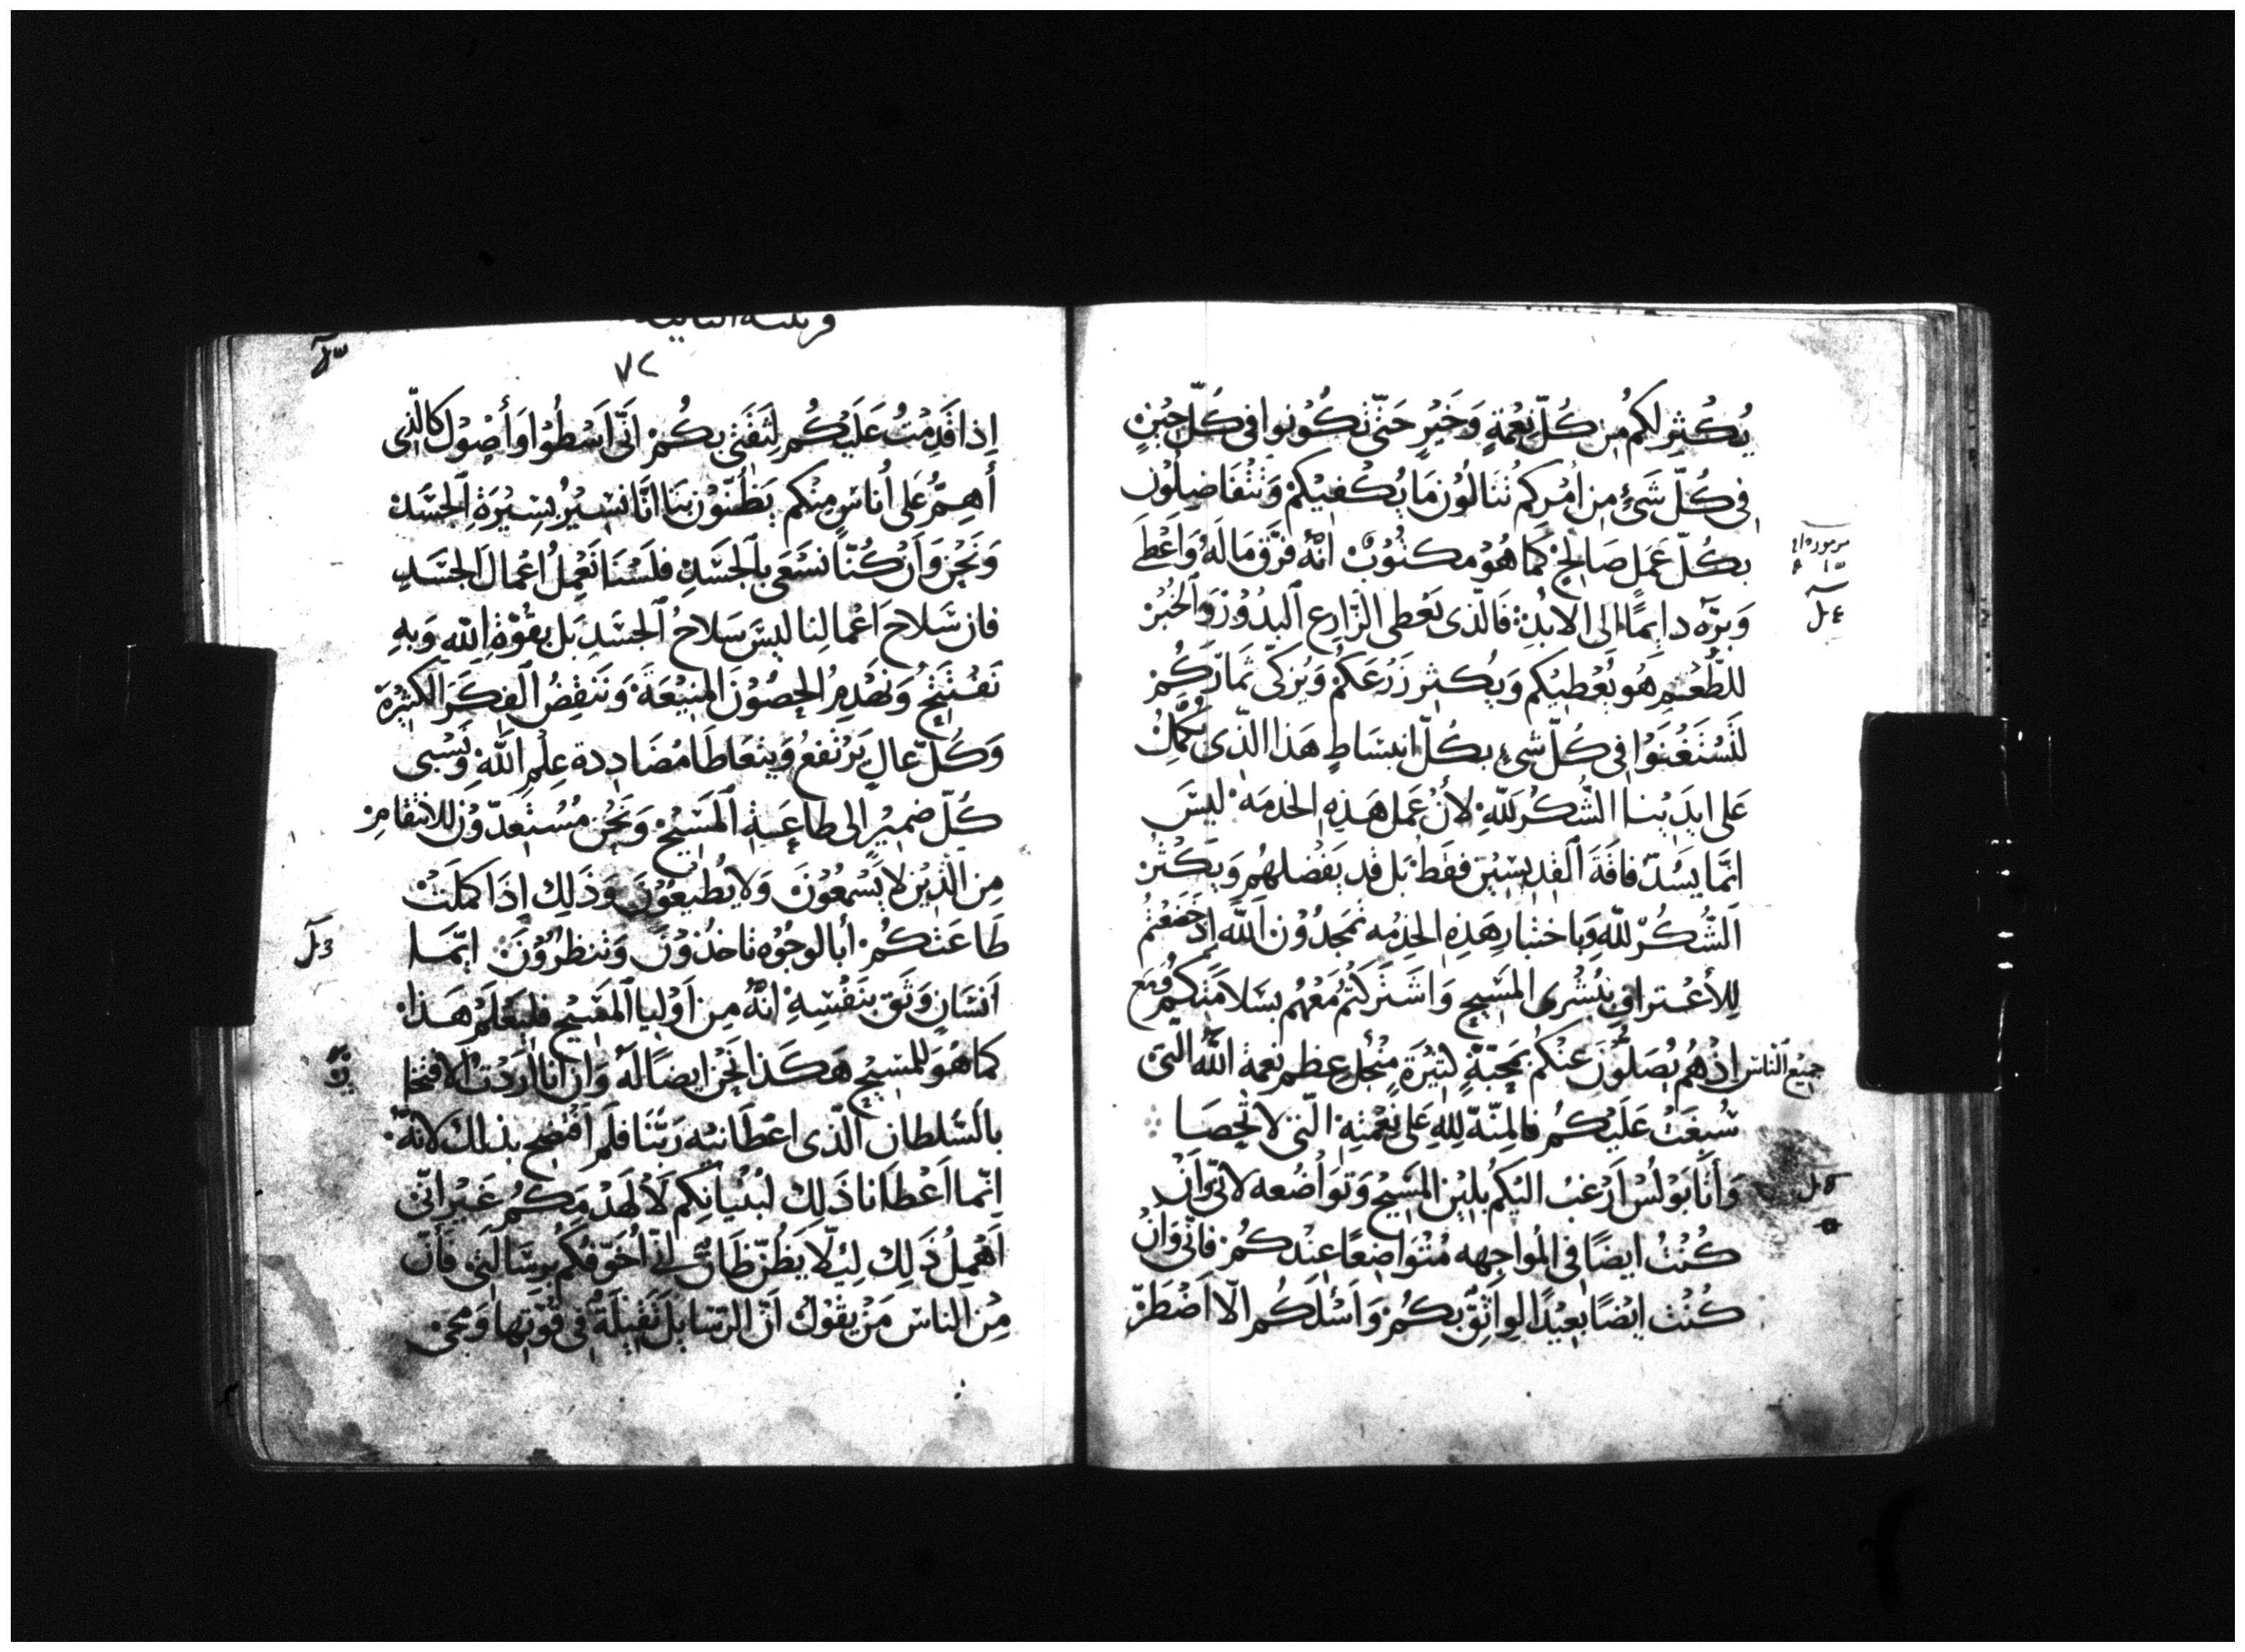 يُكْثِر لكُم مِن كُلّ نِعْمَةٍ وَخَيْرٍ حَتّى تكُوْنوا فى كُلّ حِيْنٍ
فِى كُلّ شَىْءٍ مِن اُمْركُم تَنَالُوْن مَا يُكْفيْكُمْ وَتَتْفَاضِلُوْن
بكُلّ عَمَلٍ صَالِحْ كَما هُوْ مكتُوْبْ انّهُ فرّق مَالَهُ وَاَعْطَى
وَبرّهُ دايمًا الى الابَدِ فَالّذى يَعْطى الزّارِع البدُوْرْ وَالخُبْزْ
للطُّعْمِ هُو يُعْطِيْكم وَيُكثِر زَرْعَكُمْ وَيُزكّى ثمَارَكُمْ
لتَسْتَغْنَوْا فى كُلّ شىءٍ بكُلّ انبسَاطٍ هَذا الذّى يُكَمِّلُ
عَلى ايدَيْنا الشُّكْرَ للّهِ لأَنّ عَمَل هَذِهِ الخدمَة ليسَ
انّما يَسُدّ فاقَةَ القدّيسِيْن فقَطْ بَل قد يَفْضلهُم وَيكْثرْ
الشُّكْرْ للّهِ وَباختبار هَذِهِ الخِدْمه تمَجدُوْن اللّه اِذ خَضَعْتُمْ
لِلأعْتراف ببُشْرى المَسِيحِ وَاشَتركتُم مَعْهُم بسَلاَمَتكُم وَمَع
جميْع الناس اِذْ هُم يُصَلّونَ عَنْكُم بمَحِبّةٍ كثِيْرَةٍ مِنْ اجْلِ عِظم نِعمة اللّه الّتى
سُبغَتْ عَلَيْكُم فالمِنّة لِلّهِ عَلى نِعْمتِهِ الّتى لا تُحصَا
وَاَنَا بَوْلُسْ اَرْغبُ اليَكُمْ بِليْنِ المَسِيْحْ وَتوَاُضُعه لانّى وَاَن
كُنْتُ ايضًا فى المُواجهه مُتْوَاضِعًا عِنْدكُمْ فانّى وَانْ
كُنْت ايْضًا بعِيْدًا لواثِقٌ بكُمْ وَاَسْلكُم الّا اَضْطَرّ
مزموره
٤ل
٥ل
٧٢
اِذا قَدِمْتُ عَلَيْكُم لِثقَتى بكُمْ اَنّى اَسْطُوْا وَأَصُوْل كالّذى
أَهِمّ عَلى اُناسٍ مِنْكم يَظنّوْن بنَا انّا نسِيْرُ بسِيْرَةِ الجَسَدْ
وَنَحْن وَانْ كُنّا نسَعَى بالجَسَدِ فلَسْنَا نَعْمِلُ اعْمالَ الجَسَدِ
فان سَلاحَ اَعْمالِنا ليسَ سَلاحُ الجسَدِ بَل بقُوّةِ اللّهِ وَبهِ
نَفْتَتِحُ وَنهْدِمُ الحِصُوْنَ المنِيْعَةَ وَنَنقِضُ الفِكرَ الكثِيْرَة
وَكُلّ عالٍ يَرْتفعُ وَيتعَاطَا مُضَادِدة عِلْمِ اللّهْ وَنَسْبى
كُلّ ضمِيْرٍ الى طاعَةِ المَسِيْحْ وَنَحْن مُسْتعِدّوْن للانتقام
مِن الّذيْن لا يَسْمعُوْنَ وَلا يُطيْعُوْنَ وَذَلِك اِذَا كمَلَتْ
طَاعَتكُمْ أبالوجُوْه تاخذُوْنَ وَتنظرُوْنَ ايّمَا
اَنسَانٍ وَثَق بنَفْسِهِ انّهُ مِن اَوْليا المَسِيْحِ فليَعْلَمْ هَذا
كما هُوَ للمسِيْحِ هَكَذا نَحْن ايضًا لَه وَان انا ارَدْت الافتخا
بالسّلطان الّذى اعْطَانيْه رَبّنَا فلم اَفتضح بذلك لانّهُ
انّما اَعْطَانا ذَلِك لبُنْيانِكم لا لهَدْمكُمْ غَيْرَ انّى
اَهْمِلُ ذَلِك لِئلّا يَظُنّ ظَانٌ انّى اُخَوّفكُم برسَالَتى فَاَنّ
مِن الناسِ مَنْ يقُوْل اَنّ الرّسَايلَ ثَقِيْلَةٌ فى قُوّتِها وَمجى
٣ل